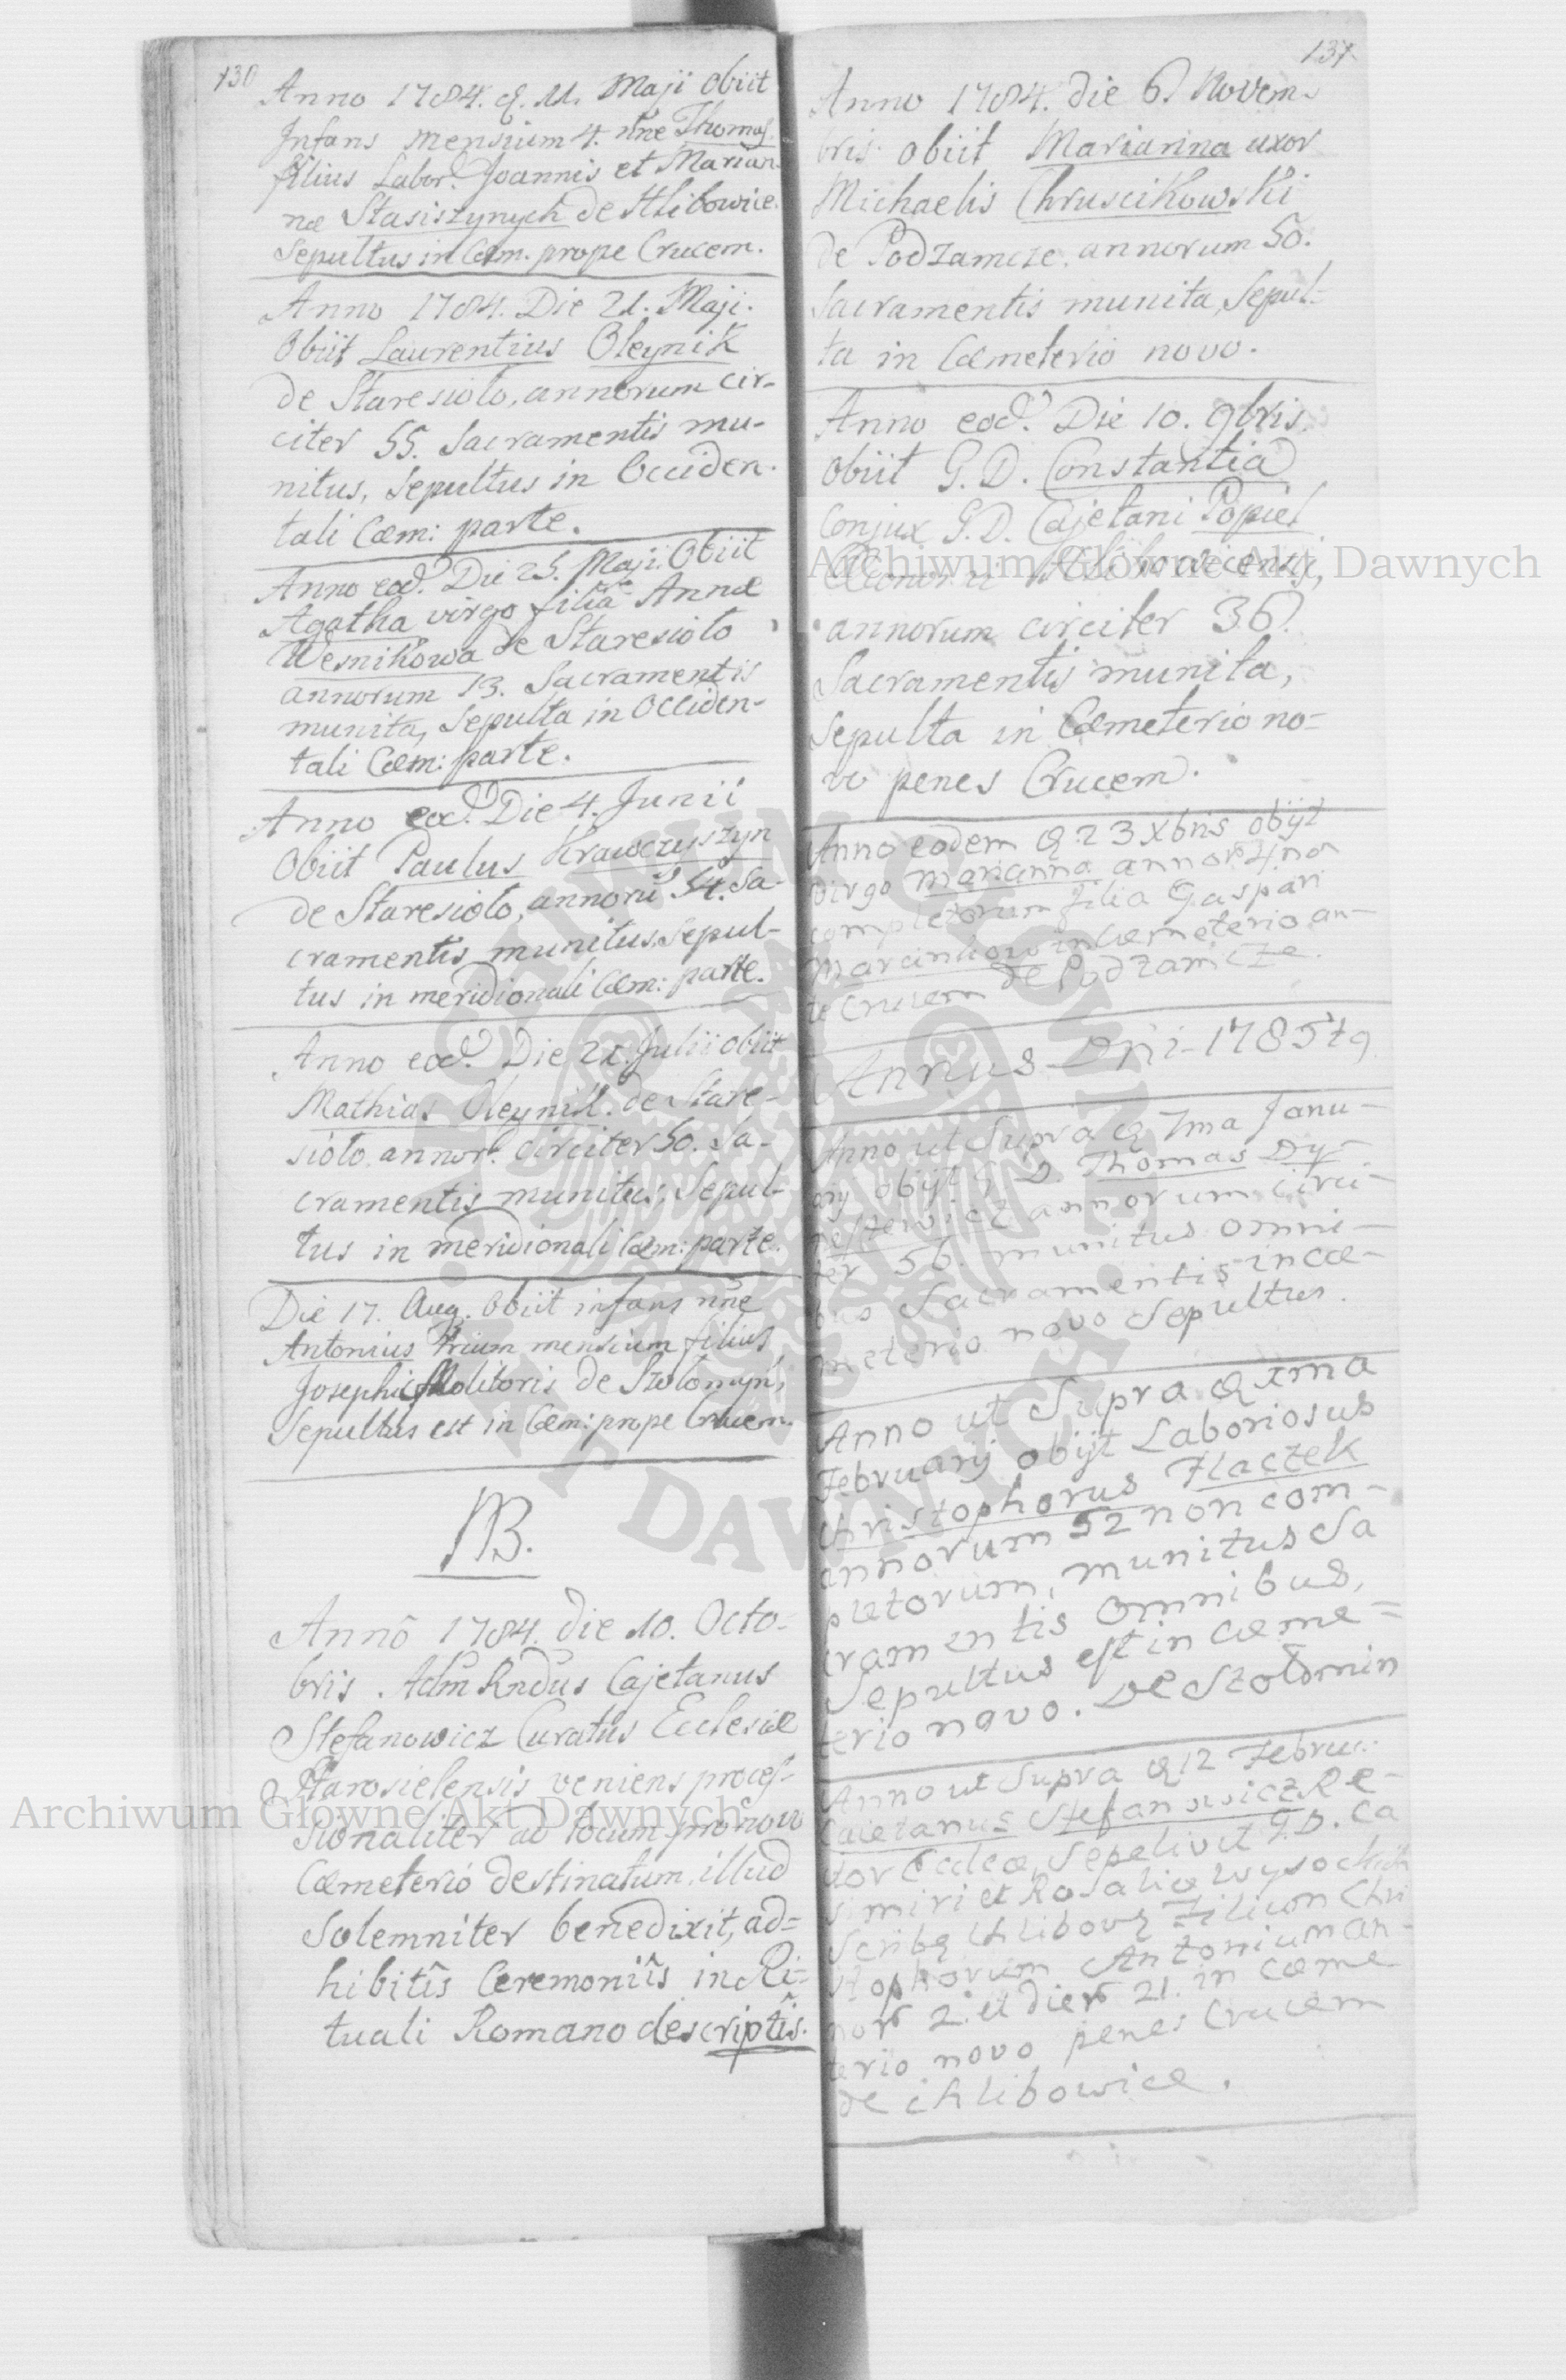 130
Anno 1784. d. 11. Maji obiit
Infans mensium 4. nne Thomas
filius Labor. Joannis et Marian-
næ Stasiszynych de Hlibowice.
Sepultus in Cœm. prope Crucem.
Anno 1784. Die 21. Maji.
Obiit Laurentius Oleynik
de Staresiolo, annorum cir-
citer 55. Sacramentis mu-
nitus, Sepultus in Occiden-
tali Cœm: parte.
Anno eod. Die 25. Maji Obiit
Agatha virgo filia Annæ
Wesnikowa de Staresiolo
annorum 13. Sacramentis
munita, Sepulta in Occiden-
tali Cœm: parte.
Anno eod. Die 4. Junii
Obiit Paulus Krawczuszyn
de Staresiolo, annorū 54. Sa-
cramentis munitus, Sepul-
tus in meridionali Cœm: parte.
Anno eod. Die 21. Julii obiit
Mathias Oleynik de Stare-
siolo, annor. circiter 50. Sa-
cramentis munitus, Sepul-
tus in meridionali Cœm: parte.
Die 17. Aug. Obiit infans nne
Antonius Trium mensium filius
Josephi Molitoris de
Sepultus est in Cœm: prope Crucem.
NB.
Anno 1784. die 10. Octo-
bris. Adm Rndus Cajetanus
Stefanowicz Curatus Ecclesiæ
Starosielensis veniens proces-
sionaliter ad locum pro novo
Cœmeterio destinatum, illud
Solemniter benedixit, ad=
hibitis Ceremoniis in Ri-
tuali Romano descriptis.
137.
Anno 1784. die 6. Novem-
bris obiit Marianna uxor
Michaelis Chruscikowski
de Podzamcze. annorum 50.
Sacramentis munita, Sepul-
ta in Cœmeterio novo.
Anno eod. Die 10. 9bris.
obiit G. D. Constantia
Conjux G. D. Cajetani Popiel
Hlibowicensis,
annorum circiter 36.
Sacramentis munita,
Sepulta in Cœmeterio no=
vo penes Crucem.
Anno eodem d. 23 Xbris obijt
Virgo Marianna annor 4 non
completorum filia Gaspari
Marcinkow in Cœmeterio an-
te Crucem de Podzamcze.
Annus Dni 1785tg
Anno ut Supra d 7ma Janu-
arij obijt G D Thomas Dy-
annorum circi-
ter 56. munitus omni-
bus Sacramentis in cæ-
meterio novo Sepultus.
Anno ut Supra d 1ma
Februarij obijt Laboriosus
Christophorus Flaczek
annorum 52 non com-
pletorum, munitus Sa
cramentis omnibus,
Sepultus est in cæme=
terio novo. De Szolomin
Anno ut Supra d 12 Februa:
Caietanus Stefanowicz Re-
ctor Ecclæ, Sepelivit G.D. Ca
simiri et Rosaliæ Wysockich
Scribę Chlibovę Filium Chri
stophorum Antonium an-
nor 2. et dier 21. in cœme
terio novo penes Crucem
de Chlibowice.
Archiwum Główne Akt Dawnych
Archiwum Główne Akt Dawnych
ARCHIWUM GŁÓWNE
AKT DAWNYCH